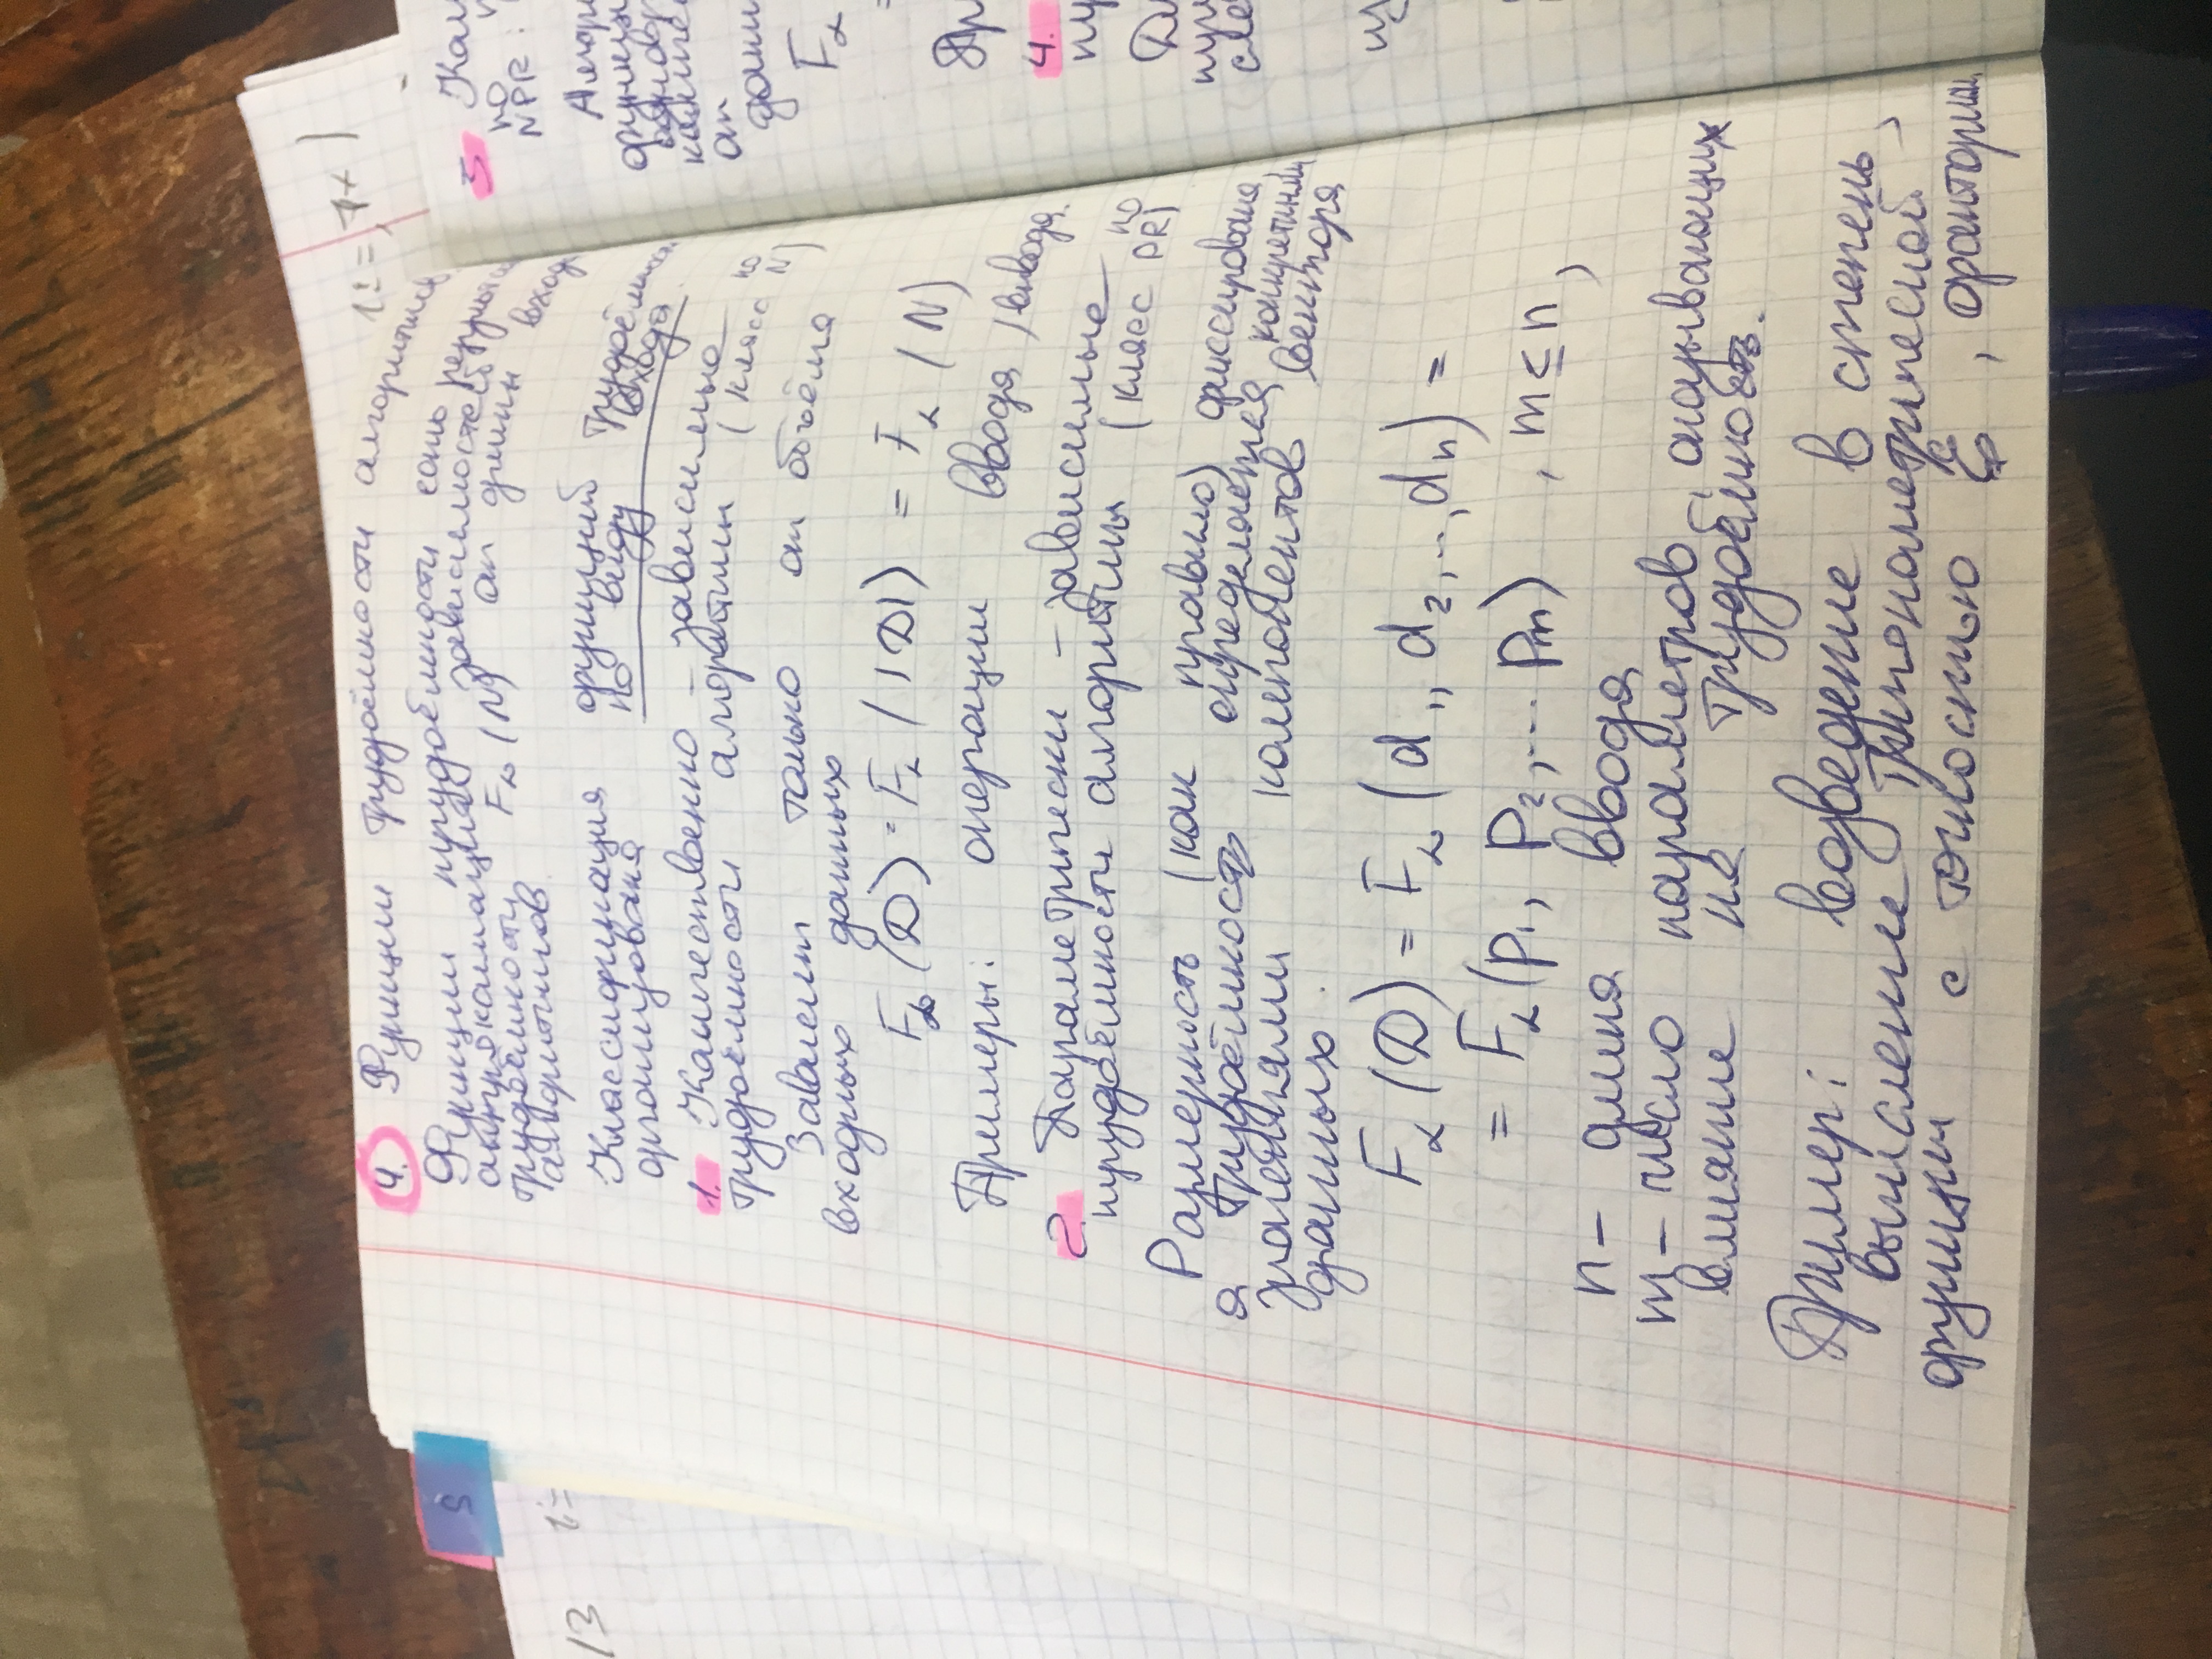 4. Функции трудоёмкости алгоритмов
Функции трудоёмкости есть результат
аппроксимации зависимостей
трудоёмкости F𝛼(N) от длины входа
алгоритмов.
Классификация функций трудоёмкости
организована по виду входа.
1. Количественно - зависимые по
трудоёмкости алгоритмы (класс N)
Зависит только от объёма
входных данных
F𝛼(D) = F𝛼(|D|) = F𝛼(N)
Примеры: операции ввода/вывода.
2. Параметрически - зависимые по
трудоёмкости алгоритмы (класс PR)
Размерность (как правило) фиксирована,
а трудоёмкость определяется конкретными
значениями компонентов вектора
данных.
F𝛼(D) = F𝛼(d₁, d₂,..., dₙ) =
= F𝛼(p₁, p₂,... pₘ) , m ≤ n,
n - длина ввода
m - число параметров, оказывающих
влияние на трудоёмкость.
Пример: возведение в степень,
вычисление тригонометрической
функции с точностью ξ, факториал.
5
13
i:=
3
по
NPR:
от
F𝛼
=
4.